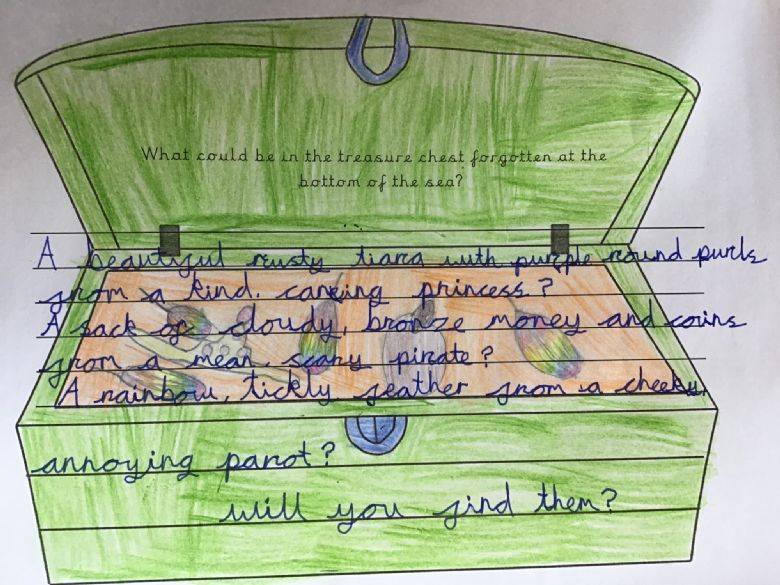 What could be in the treasure chest forgotten at the
bottom of the sea?
A beautiful rusty tiara with purple round purls
from a kind, careing princess?
A sack of cloudy, bronze money and coins
from a mean, scary pirate?
A rainbow, tickly feather from a cheeky,
annoying parot?
will you find them?